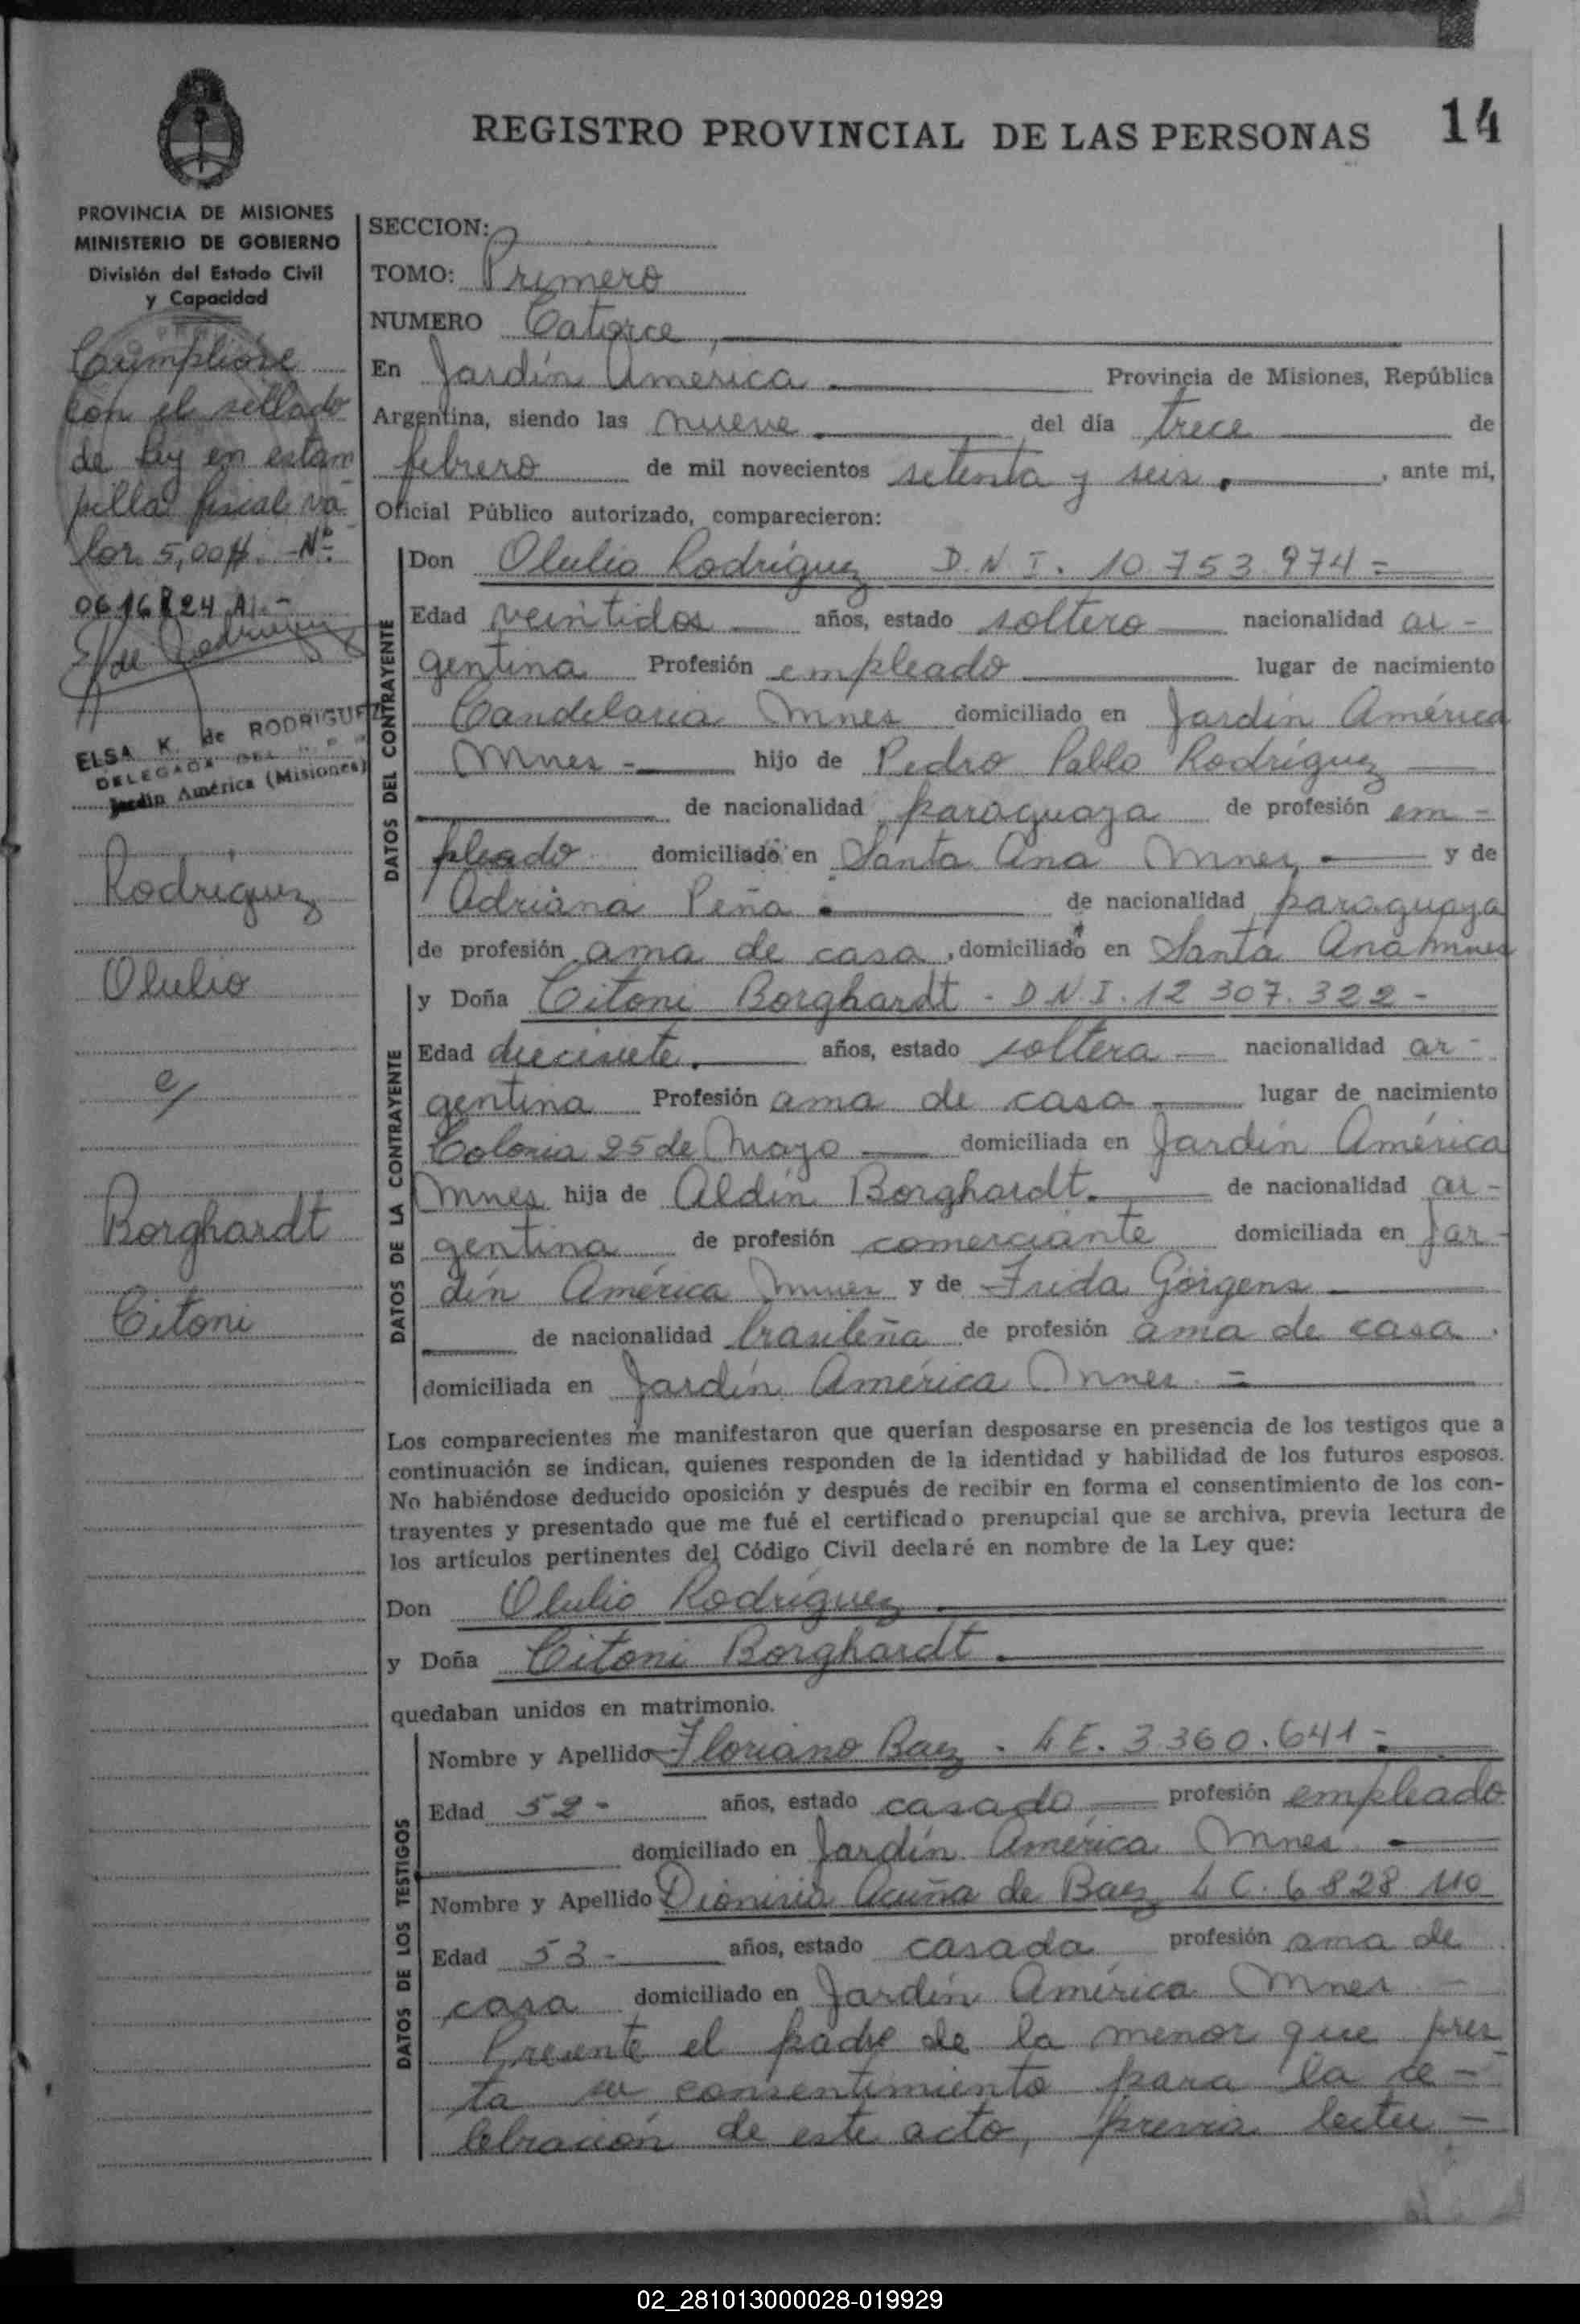 REGISTRO PROVINCIAL DE LAS PERSONAS 14
PROVINCIA DE MISIONES
MINISTERIO DE GOBIERNO
División del Estado Civil
y Capacidad
Cumplióse
con el sellado
de ley en estam
pilla fiscal va
lor 5,00 $. Nº
0616824 A.-
E K de Rodriguez
ELSA K. de RODRIGUEZ
DELEGADA DEL R. P. P.
Jardín América (Misiones)
Rodriguez
Olulio
c/
Borghardt
Citoni
SECCION:
TOMO: Primero
NUMERO Catorce,
En Jardín America Provincia de Misiones, República
Argentina, siendo las nueve del día trece de
febrero de mil novecientos setenta y seis. , ante mi,
Oficial Público autorizado, comparecieron:
DATOS DEL CONTRAYENTE
Don Olulio Rodríguez D.N.I. 10.753.974=
Edad veintidos años, estado soltero nacionalidad ar-
gentina Profesión empleado lugar de nacimiento
Candelaria Mnes domiciliado en Jardín América
Mnes - hijo de Pedro Pablo Rodríguez
de nacionalidad paraguaya de profesión em-
pleado domiciliado en Santa Ana Mnes. y de
Adriana Peña. de nacionalidad paraguaya
de profesión ama de casa, domiciliado en Santa Ana Mnes
DATOS DE LA CONTRAYENTE
y Doña Citoni Borghardt - D.N.I. 12 307.322-
Edad diecisiete. años, estado soltera nacionalidad ar-
gentina Profesión ama de casa lugar de nacimiento
Colonia 25 de Mayo domiciliada en Jardín América
Mnes hija de Aldín Borghardt. de nacionalidad ar-
gentina de profesión comerciante domiciliada en Jar-
dín América Mnes y de Frida Görgens
de nacionalidad brasileña de profesión ama de casa.
domiciliada en Jardín América Mnes =
Los comparecientes me manifestaron que querían desposarse en presencia de los testigos que a
continuación se indican, quienes responden de la identidad y habilidad de los futuros esposos.
No habiéndose deducido oposición y después de recibir en forma el consentimiento de los con-
trayentes y presentado que me fué el certificado prenupcial que se archiva, previa lectura de
los artículos pertinentes del Código Civil declaré en nombre de la Ley que:
Don Olulio Rodríguez
y Doña Citoni Borghardt.
quedaban unidos en matrimonio.
DATOS DE LOS TESTIGOS
Nombre y Apellido Floriano Baez. L E. 3.360.641=
Edad 52- años, estado casado profesión empleado
domiciliado en Jardín América Mnes
Nombre y Apellido Dionisia Acuña de Baez L C. 6 828 110
Edad 53- años, estado casada profesión ama de
casa domiciliado en Jardín América Mnes -
Presente el padre de la menor que pres
ta su consentimiento para la ce-
lebración de este acto, previa lectu-
02_281013000028-019929